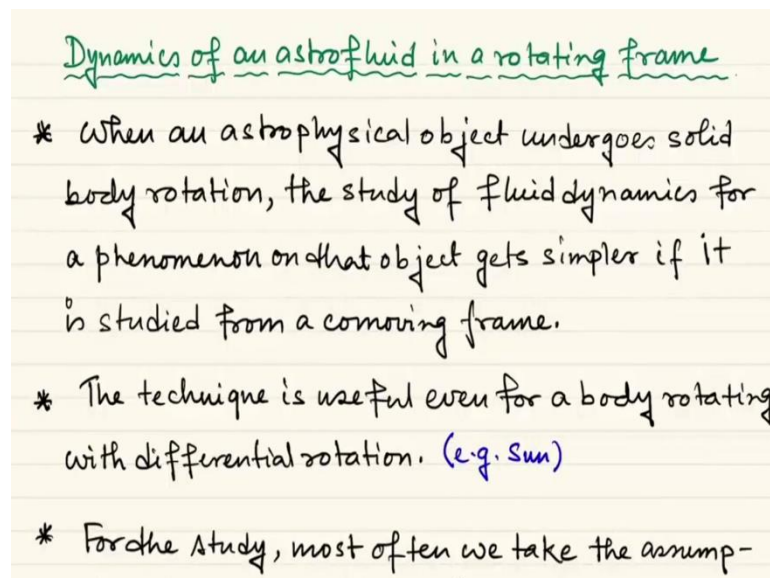 Dynamics of an astrofluid in a rotating frame
* When an astrophysical object undergoes solid
body rotation, the study of fluid dynamics for
a phenomenon on that object gets simpler if it
is studied from a comoving frame.
* The technique is useful even for a body rotating
with differential rotation. (e.g. Sun)
* For the study, most often we take the assump-